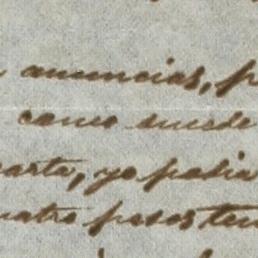 anuncias, p
como sucede
carta, yo podia
uatro pesos ten